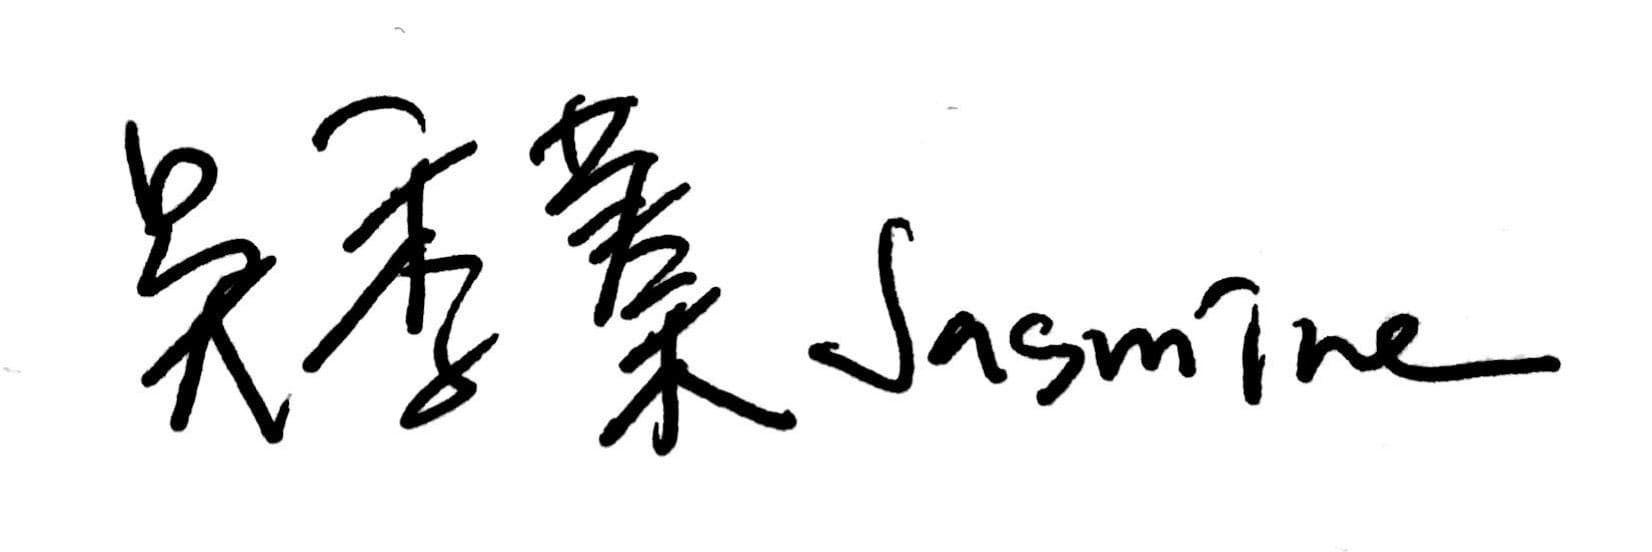 吳季蓁 Jasmine